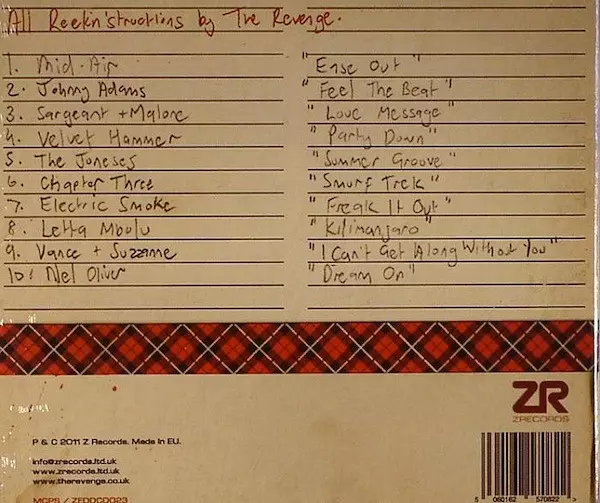 All Reekin'structions by The Revenge.
1. Mid-Air "Ease Out"
2. Johnny Adams "Feel The Beat"
3. Sargeant + Malone "Love Message"
4. Velvet Hammer "Party Down"
5. The Joneses "Summer Groove"
6. Chapter Three "Smurf Trek"
7. Electric Smoke "Freak It Out"
8. Letta Mbulu "Kilimanjaro"
9. Vance + Suzzanne "I Can't Get Along Without You"
10: Nel Oliver "Dream On"
ZR
ZRECORDS
P & C 2011 Z Records. Made In EU.
info@zrecords.ltd.uk
www.zrecords.ltd.uk
www.therevenge.co.uk
MCPS / ZEDDCD023
5 060162 570822 >